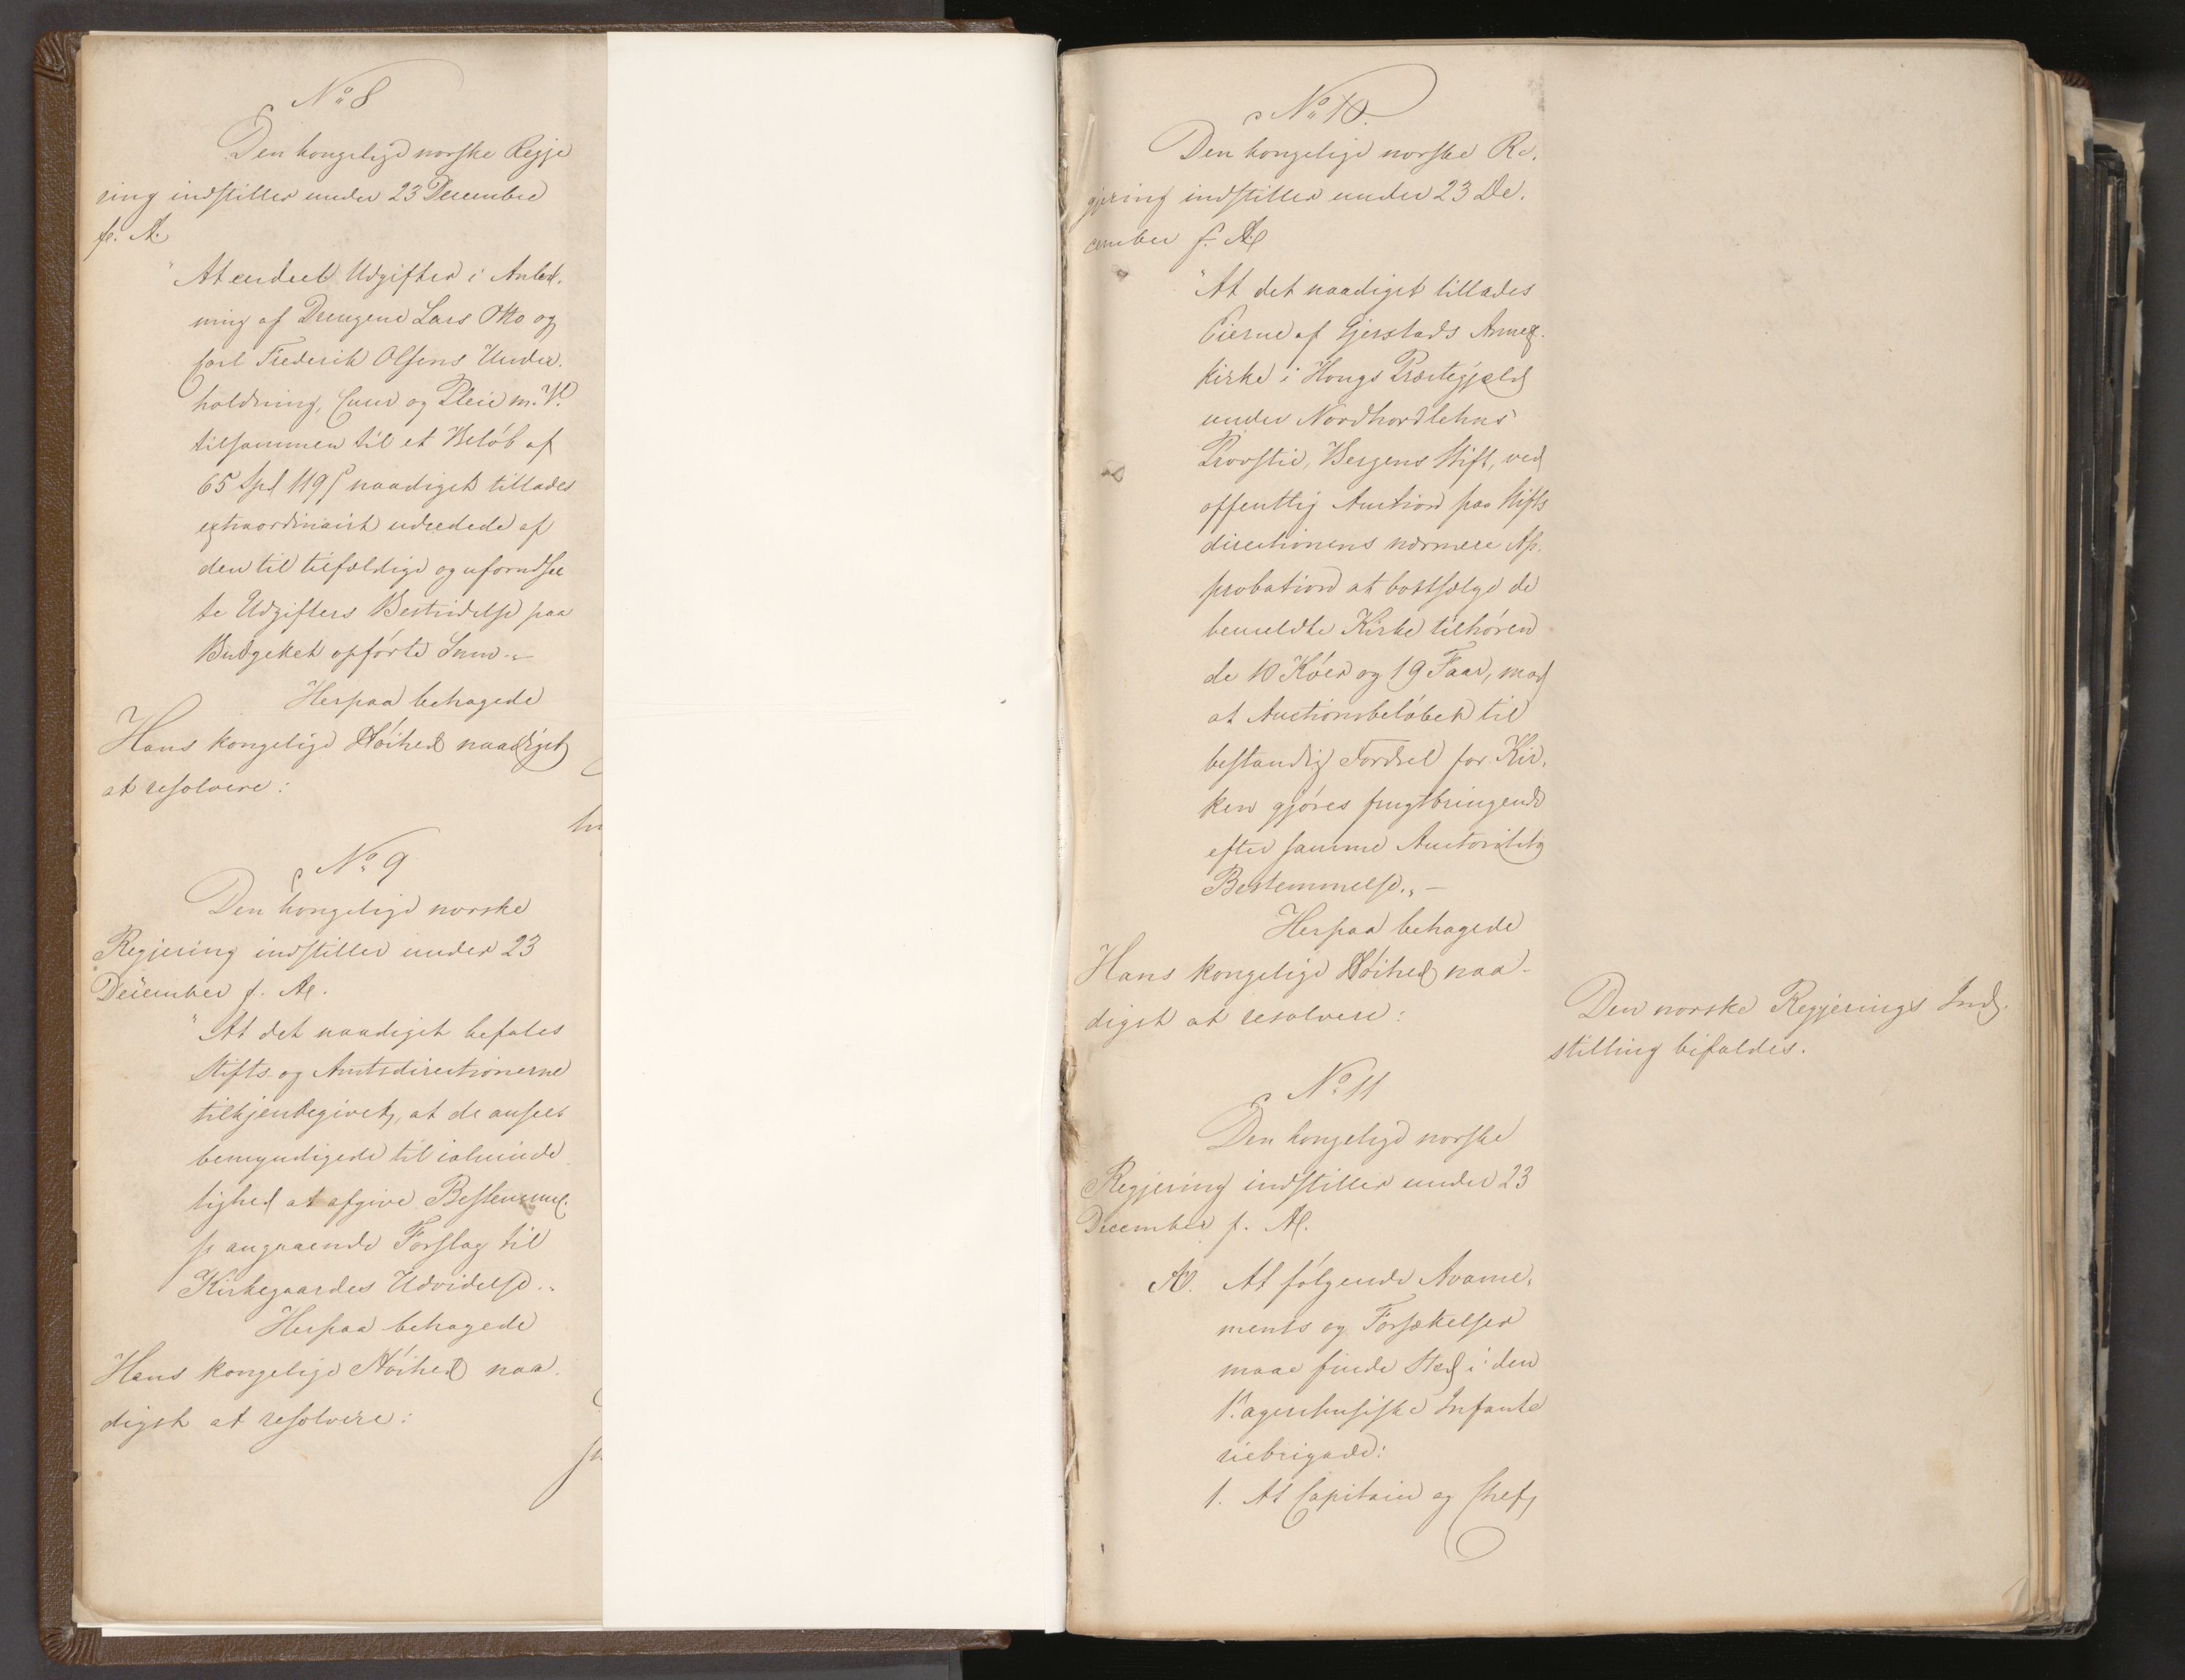 No 8
Den kongelige norske Regje
ring indstiller under 23 December
f. A.
"At endeel Udgifter i Anled,
ning af Drengene Lars Otto og
Carl Frederik Olsens Under,
holdning, Cuur og Pleie m. V.
tilsammen til et Beløb af
65 Spd 119 s naadigst tillades
extraordinairt udredede af
den til tilfældige og uforudsee
te Udgifters Bestridelse paa
Budgettet opførte Sum„ –
Herpaa behagede
Hans kongelige Høihed naadigst
at resolvere:
No 9
Den kongelige norske
Regjering indstiller under 23
December f. A.
"At det naadigst befales
Stifts- og Amtsdirectionerne
tilkjendegivet, at de ansees
bemyndigede til i alminde
lighed at afgive Bestemmel,
se angaaende Forslag til
Kirkegaardes Udvidelse„
Herpaa behagede
Hans kongelige Høihed naa
digst at resolvere:
No 10.
Den kongelige norske Re,
gjering indstiller under 23 De,
cember f. A.
"At det naadigst tillades
Eierne af Gjerstads Annex,
kirke i Hougs Præstegjeld
under Nordhordlehns
Provstie, Bergens Stift, ved
offentlig Auction paa Stifts
directionens nærmere Ap,
probation at bortsælge de
bemeldte Kirke tilhøren
de 10 Køer og 19 Faar, mod
at Auctionsbeløbet til
bestandig Fordeel for Kir,
ken gjøres frugtbringende
efter samme Autoritets
Bestemmelse„ –
Herpaa behagede
Hans kongelige Høihed naa-
digst at resolvere:
Den norske Regjerings Ind,
stilling bifaldes.
No 11
Den kongelige norske
Regjering indstiller under 23
December f. A.
A. At følgende Avance,
ments og Forsættelser
maae finde Sted i den
1. agershusiske Infante
riebrigade:
1. At Capitain og Chef